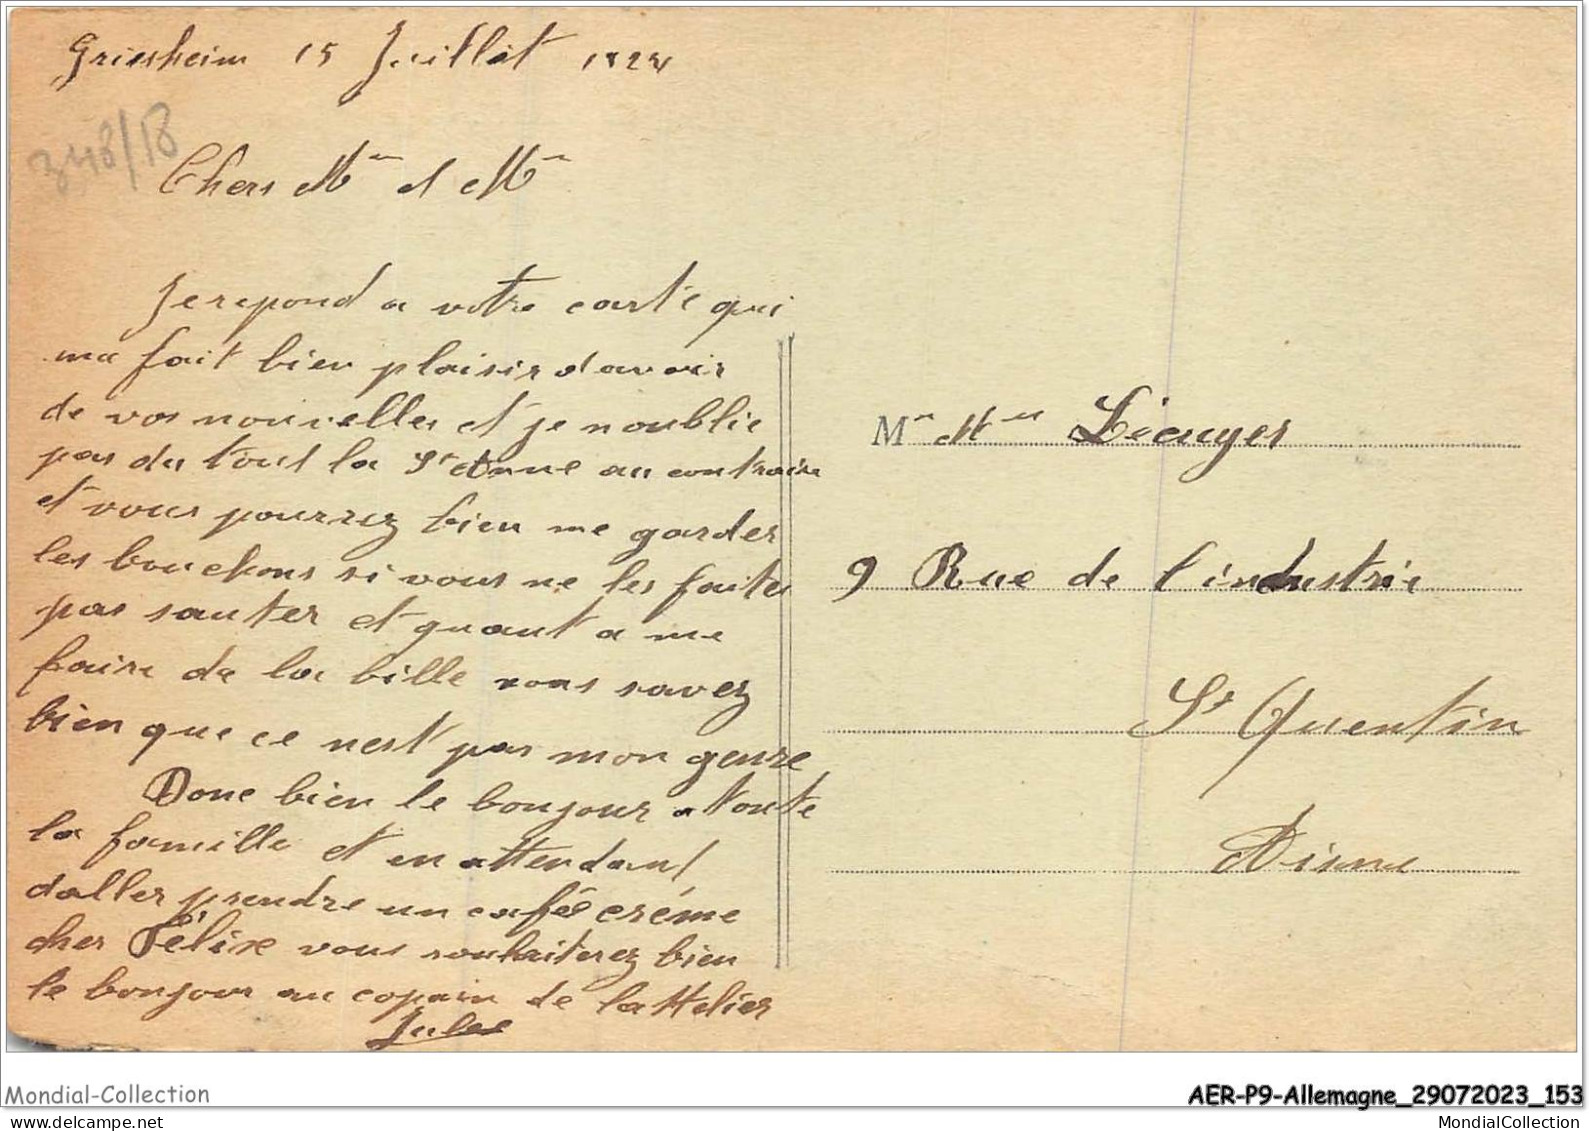 Griesheim 15 Juillet 1924
348/18
Chers Mr et Mme
Je repond a votre carte qui
ma fait bien plaisir davoir
de vos nouvelles et je noublie
pas du tout la Ste Anne au contraire
et vous pourrez bien me garder
les bouchons si vous ne les faites
pas sauter et quant a me
faire de la bille vous savez
bien que ce nest pas mon genre
Donc bien le bonjour a toute
la famille et en attendant
daller prendre un cafée créme
cher Félixe vous souhaiterez bien
le bonjour au copain de lattelier
Jules
Mr Mme Lécuyer
9 Rue de l'industrie
St Quentin
Aisne
Mondial-Collection
AER-P9-Allemagne_29072023_153
www.delcampe.net
MondialCollection